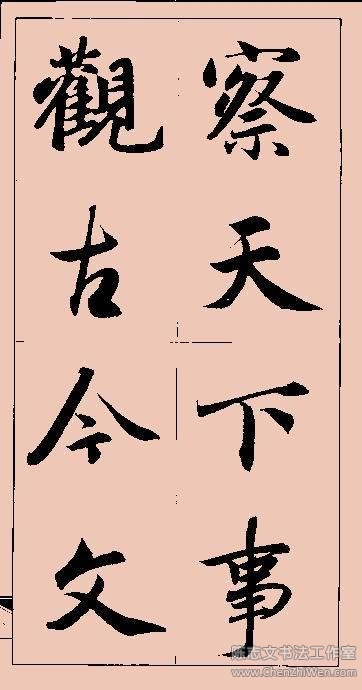 察天下事
觀古今文
陈志文书法工作室
www.ChenZhiWen.com